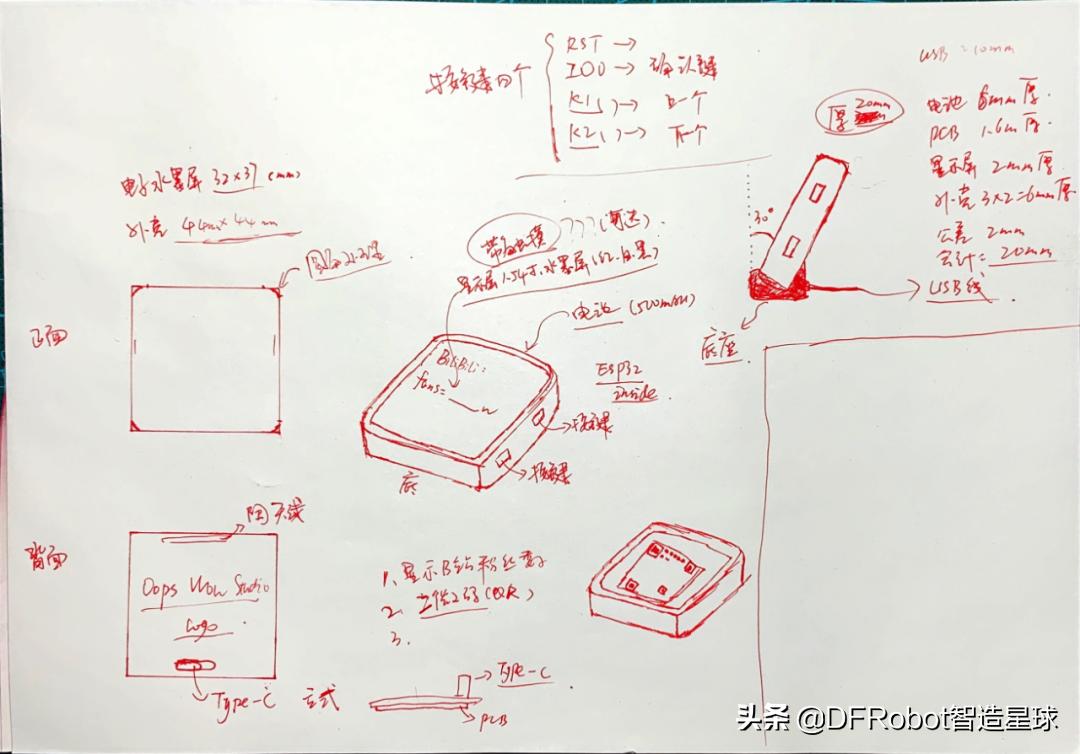 按键四个
RST →
IO0 → 确认键
K1 → 上一个
K2 → 下一个
USB = 10mm
厚 20mm
电池 6mm厚.
PCB 1.6m厚.
显示屏 2mm厚
外壳 3×2=6mm厚
公差 2mm
合计= 20mm
30°
USB线
底座
电子水墨屏 32×37 (mm)
外壳 44m×44mm
正面
显示屏1.54寸.水墨屏
电池 (500mAH)
BiliBili:
fans=____w
ESP32
inside
按键
按键
底
背面
陶天线
Oops Wow Studio
Logo
Type-C 立式
1、显示B站粉丝数
2、(QR)
3.
Type-C
PCB
头条 @DFRobot智造星球